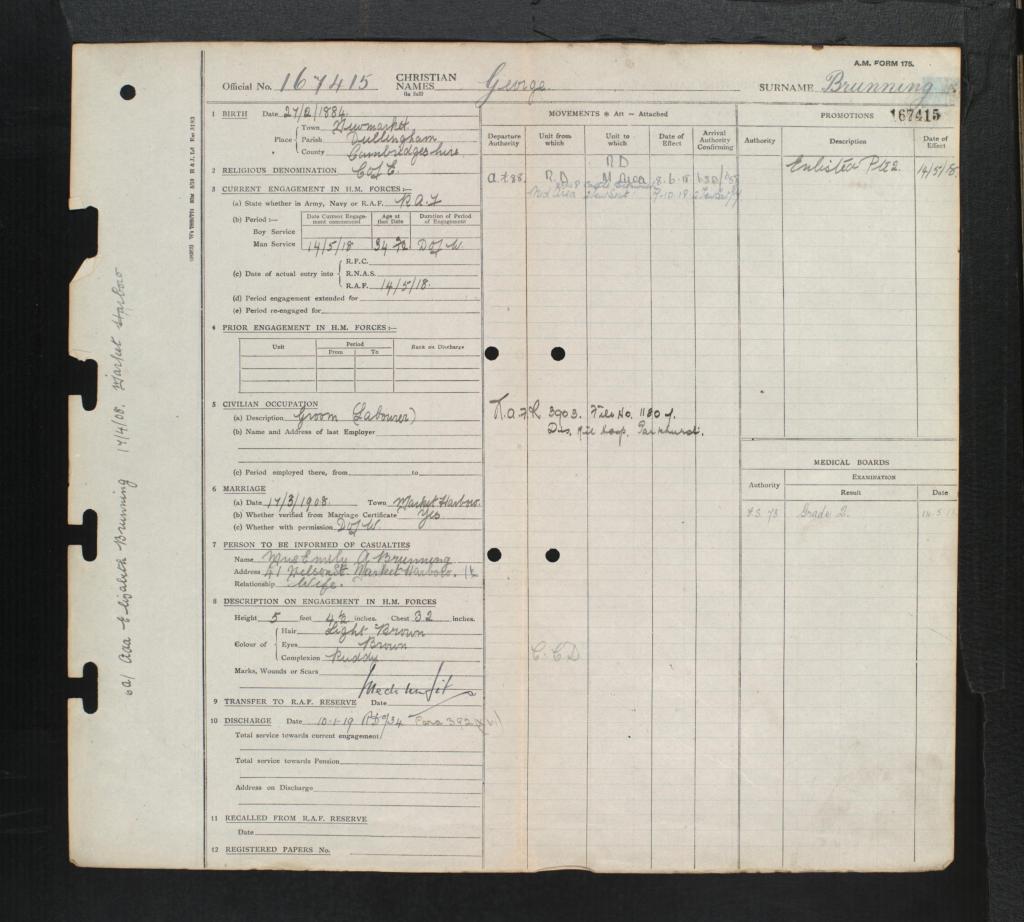 A.M. FORM 175.
Official No. 167415 CHRISTIAN NAMES (in full) George SURNAME Brunning
1 BIRTH Date 27/2/1884
Town Newmarket
Place Parish Dullingham
County Cambridgeshire
2 RELIGIOUS DENOMINATION C of E.
3 CURRENT ENGAGEMENT IN H.M. FORCES:—
(a) State whether in Army, Navy or R.A.F. R.A.F
(b) Period:— Date Current Engagement commenced Age at that Date Duration of Period of Engagement
Boy Service
Man Service 14/5/18 34 D of W
(c) Date of actual entry into R.F.C.
R.N.A.S.
R.A.F. 14/5/18.
(d) Period engagement extended for
(e) Period re-engaged for
4 PRIOR ENGAGEMENT IN H.M. FORCES:—
Unit Period Rank on Discharge
From To
5 CIVILIAN OCCUPATION
(a) Description Groom (Labourer)
(b) Name and Address of last Employer
(c) Period employed there, from to
6 MARRIAGE
(a) Date 17/3/1908 Town Market Harboro.
(b) Whether verified from Marriage Certificate Yes
(c) Whether with permission D of W.
7 PERSON TO BE INFORMED OF CASUALTIES
Name Mrs Emily A Brunning
Address 41 Nelson St. Market Harboro.
Relationship Wife.
8 DESCRIPTION ON ENGAGEMENT IN H.M. FORCES
Height 5 feet 4½ inches. Chest 32 inches.
Hair Light Brown
Colour of Eyes Brown
Complexion Ruddy
Marks, Wounds or Scars
Med Unfit
9 TRANSFER TO R.A.F. RESERVE Date
10 DISCHARGE Date 10-1-19 Para 392
Total service towards current engagement
Total service towards Pension
Address on Discharge
11 RECALLED FROM R.A.F. RESERVE
Date
12 REGISTERED PAPERS No.
MOVEMENTS * Att — Attached
Departure Authority Unit from which Unit to which Date of Effect Arrival Authority Confirming
R D
R.D M Area 8.6.18
Md Area 7.10.18
3903. File No. 1160
Dis. Mil Hosp. Parkhurst.
C.C.D
PROMOTIONS 167415
Authority Description Date of Effect
Enlisted Pte 2. 14/5/18.
MEDICAL BOARDS
Authority EXAMINATION
Result Date
Grade 2.
6a/ Ada Elizabeth Brunning 17/4/08. Market Harboro